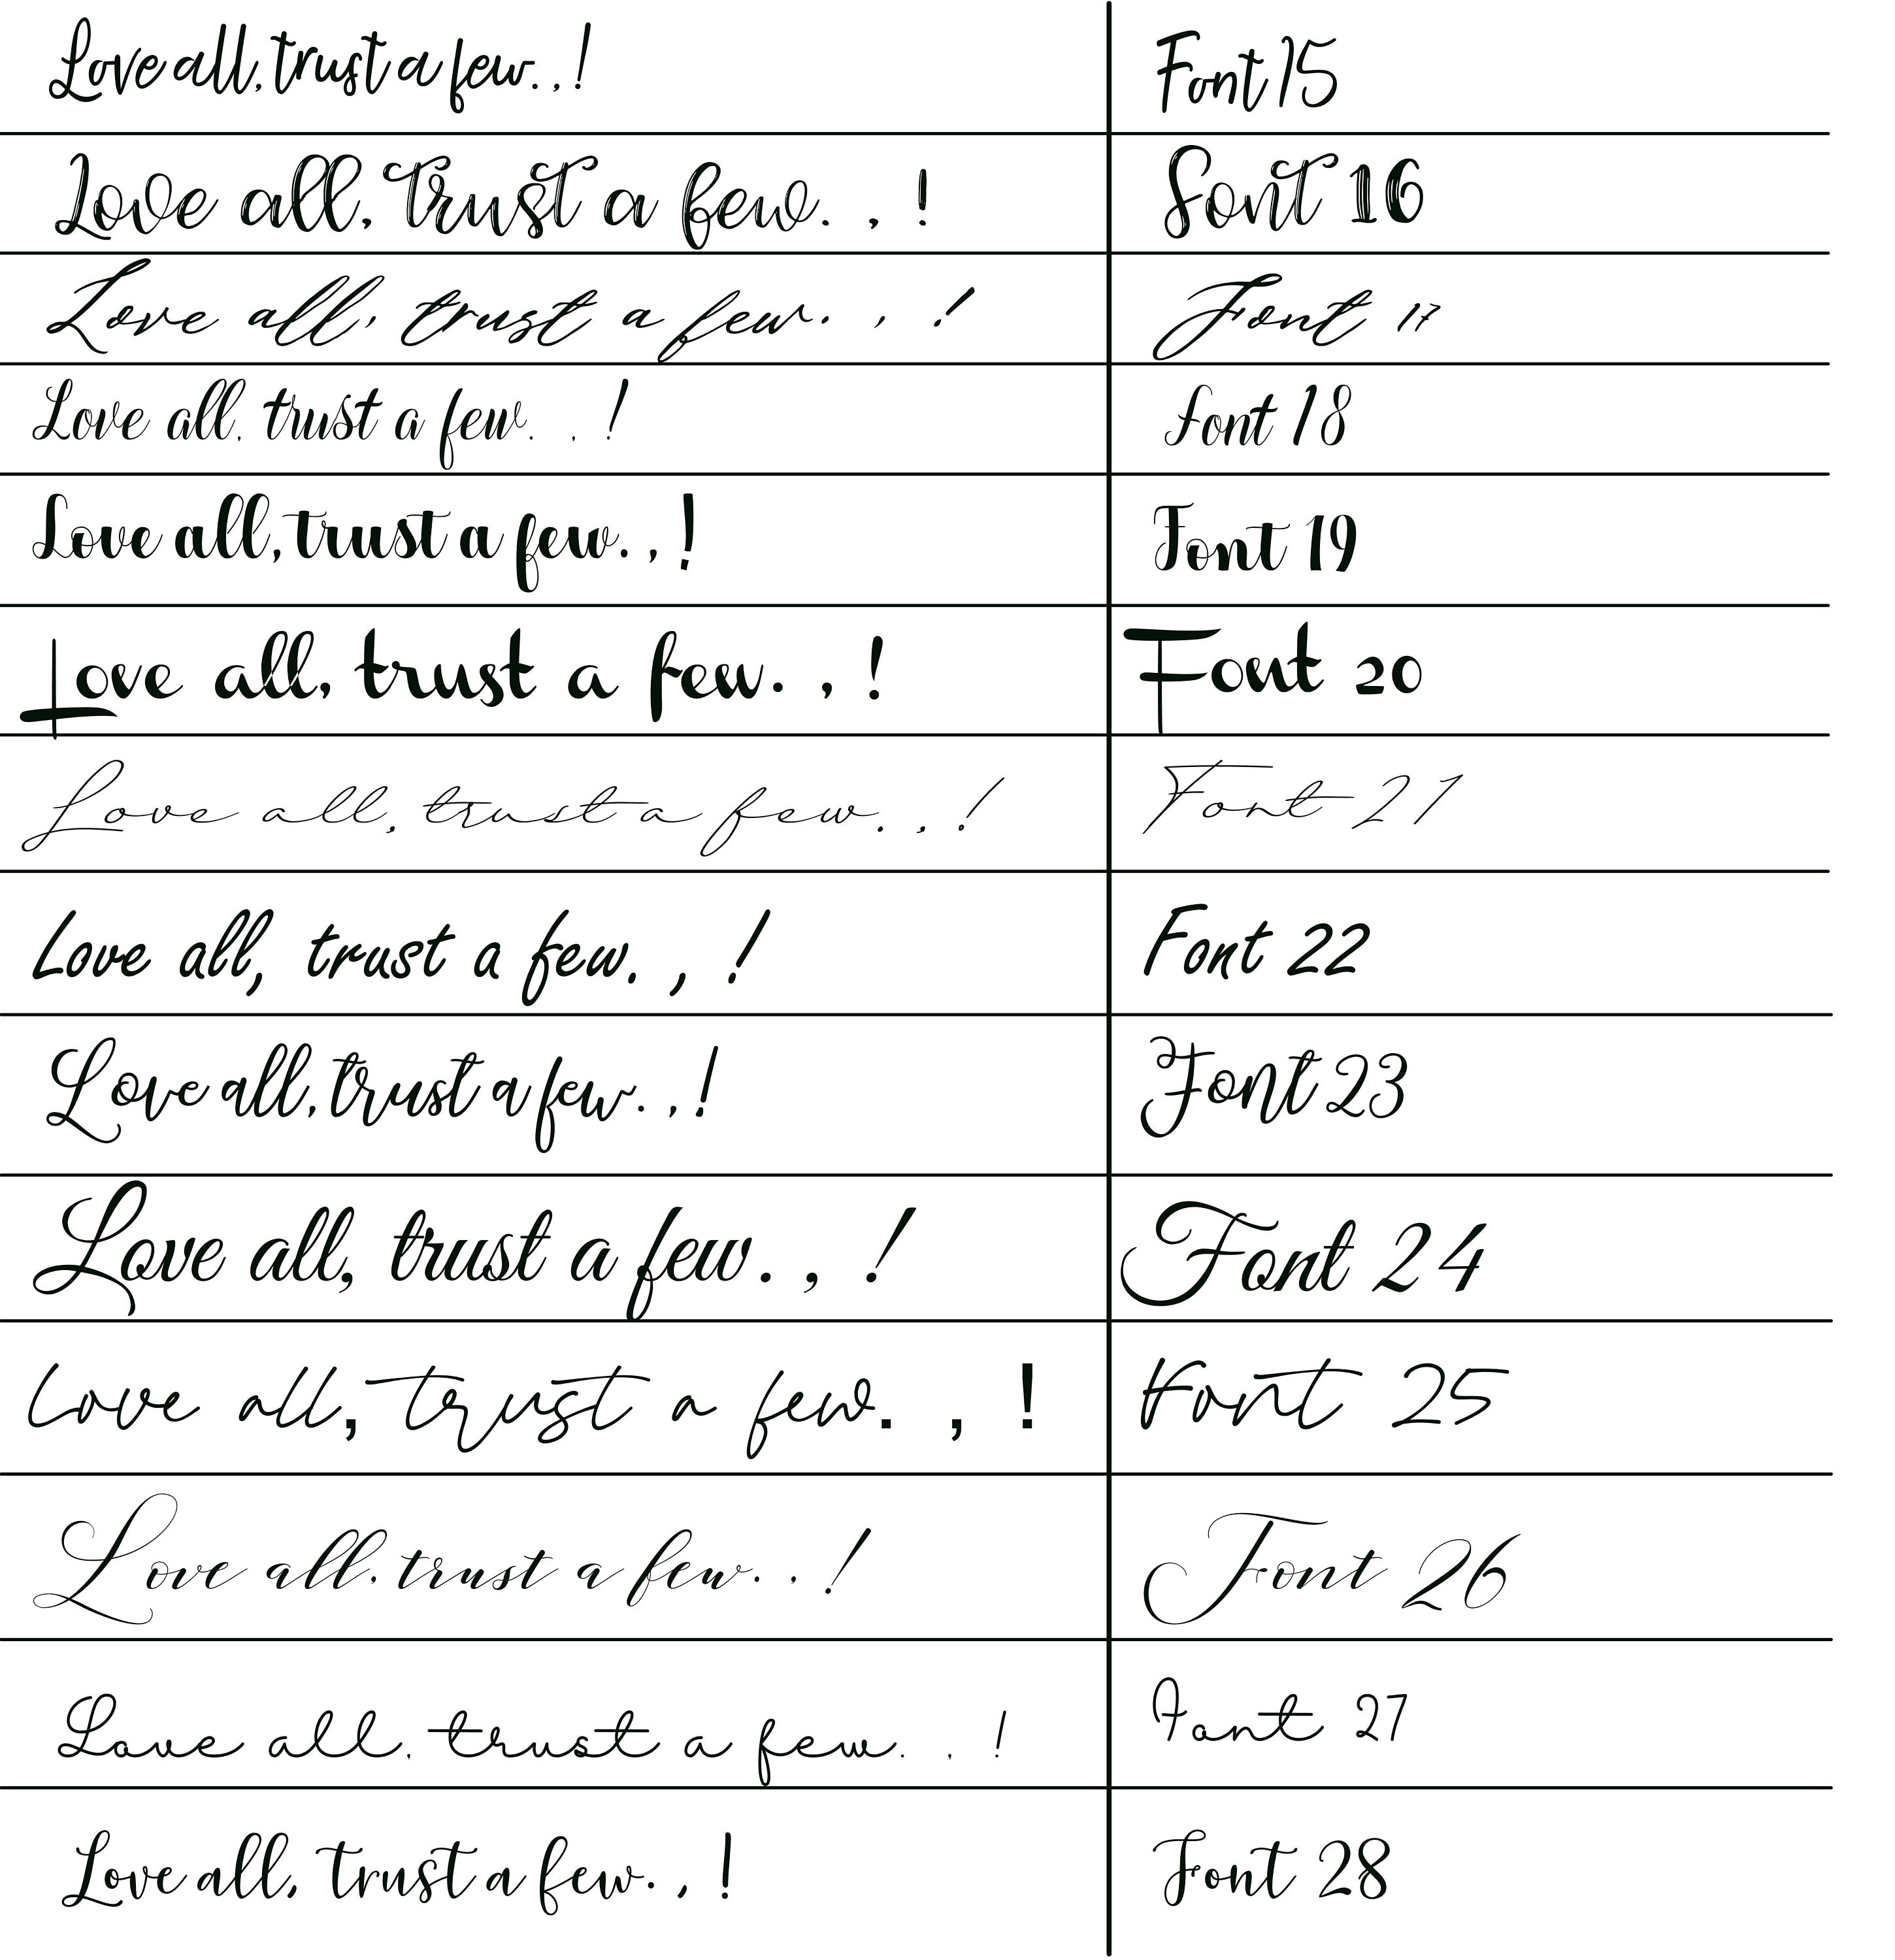 Love all, trust a few. , ! Font 15
Love all, trust a few. , ! Font 16
Love all, trust a few. , ! Font 17
Love all, trust a few. , ! Font 18
Love all, trust a few. , ! Font 19
Love all, trust a few. , ! Font 20
Love all, trust a few. , ! Font 21
Love all, trust a few. , ! Font 22
Love all, trust a few. , ! Font 23
Love all, trust a few. , ! Font 24
Love all, trust a few. , ! Font 25
Love all, trust a few. , ! Font 26
Love all, trust a few. , ! Font 27
Love all, trust a few. , ! Font 28